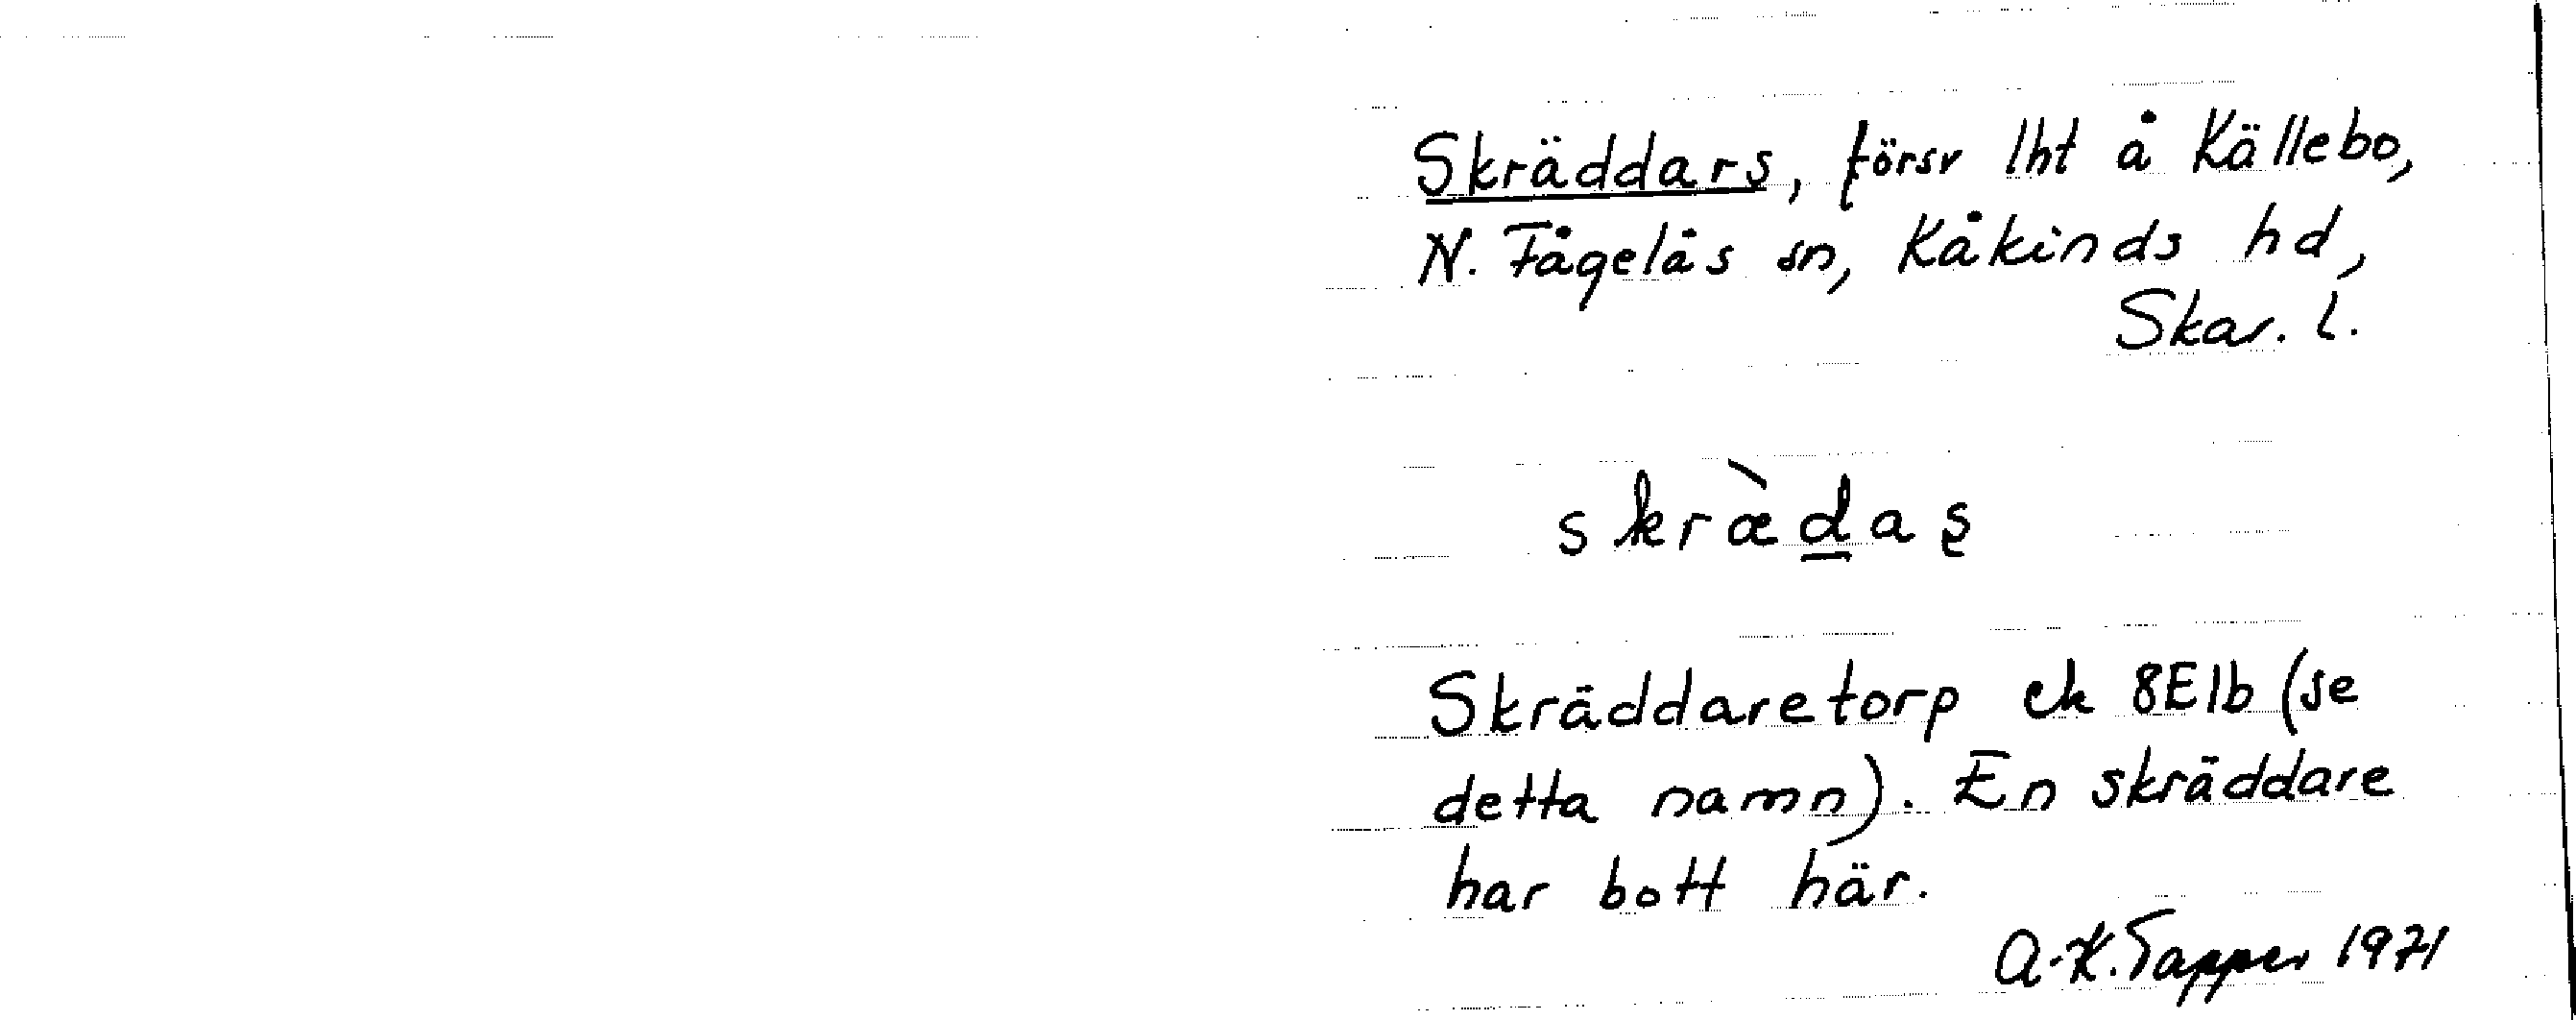 Skräddars, försv lht å Källebo,
N. Fågelås sn, Kåkinds hd,
Skar. l.
skræ̀d̲as̨
Skräddaretorp ek 8E1b (se
detta namn). En skräddare
har bott här.
A-K. Tapper 1971